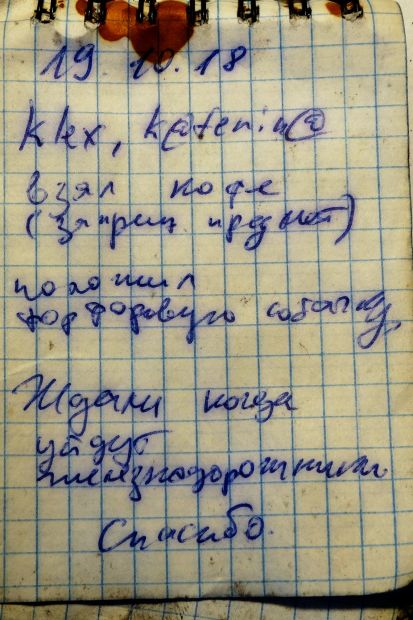 19 10.18
Klex, K@ten:in@
взял кофе
(запрещ предмет)
положил
фарфоровую собачку
Ждали когда
уйдут
железнодорожники
Спасибо